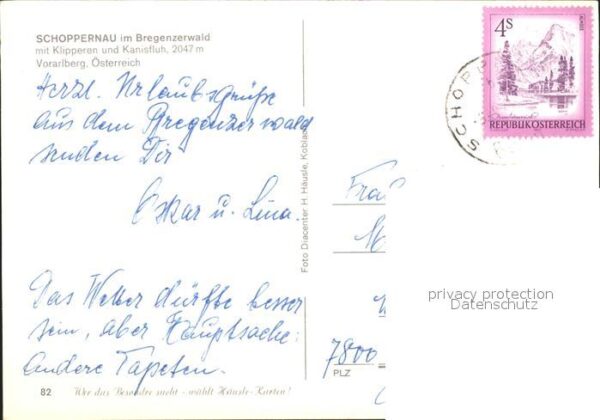 SCHOPPERNAU im Bregenzerwald
mit Klipperen und Kanisfluh, 2047 m
Vorarlberg, Österreich
Herzl. Urlaubsgrüße
aus dem Bregenzerwald
senden Dir
Oskar u. Lina.
Das Wetter dürfte besser
sein, aber Hauptsache:
andere Tapeten.
82 Wer das Besondre sucht - wählt Häusle-Karten!
Foto Diacenter H. Häusle, Koblach
4S
REPUBLIK ÖSTERREICH
SCHOPP
Frau
7800
PLZ
privacy protection
Datenschutz